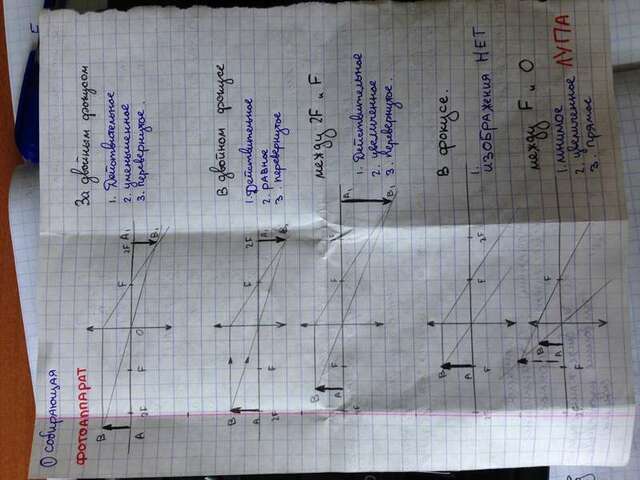 ① собирающая
ФОТОАППАРАТ
За двойным фокусом
1. Действительное
2. уменьшенное
3. Перевернутое.
B
A
2F
F
O
F
2F
A₁
B₁
В двойном фокусе
1. Действительное
2. равное
3. перевернутое
B
A
2F
F
F
2F
A₁
B₁
между 2F и F
1. Действительное
2. увеличенное
3. Перевернутое.
B
A
2F
F
F
A₁
B₁
В фокусе.
1. ИЗОБРАЖЕНИЯ НЕТ
B
A
2F
F
2F
между F и O ЛУПА
1. мнимое
2. увеличенное
3. Прямое
B
A
F
F